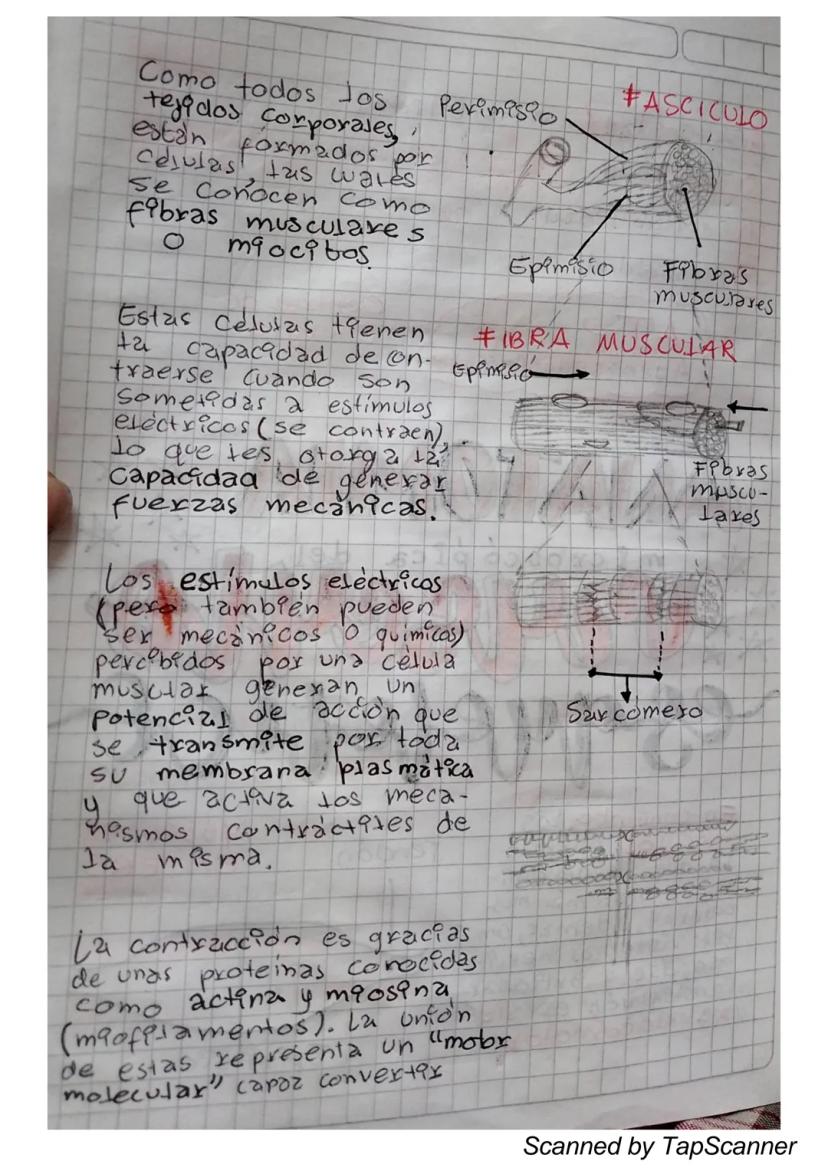 Como todos los
tejidos corporales,
están formados por
células, las cuales
se conocen como
fibras musculares
o miocitos.
Perimisio
FASCICULO
Epimisio
Fibras
musculares
Estas células tienen
la capacidad de con-
traerse cuando son
sometidas a estímulos
eléctricos (se contraen),
lo que les otorga la
capacidad de generar
fuerzas mecánicas.
FIBRA MUSCULAR
Epimisio
Fibras
muscu-
lares
Los estímulos eléctricos
(pero también pueden
ser mecánicos o químicos)
percibidos por una célula
muscular generan un
potencial de acción que
se transmite por toda
su membrana plasmática
y que activa los meca-
nismos contráctiles de
la misma.
Sarcómero
La contracción es gracias
de unas proteínas conocidas
como actina y miosina
(miofilamentos). La unión
de estas representa un "motor
molecular" capaz convertir
Scanned by TapScanner